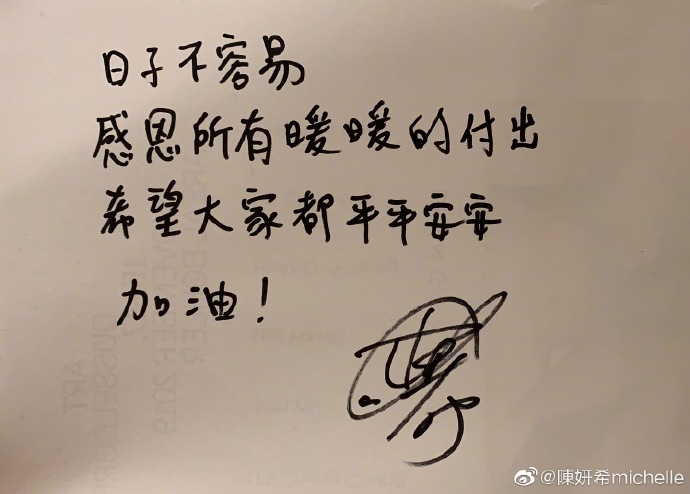 日子不容易
感恩所有暖暖的付出
希望大家都平平安安
加油!
@陳妍希michelle